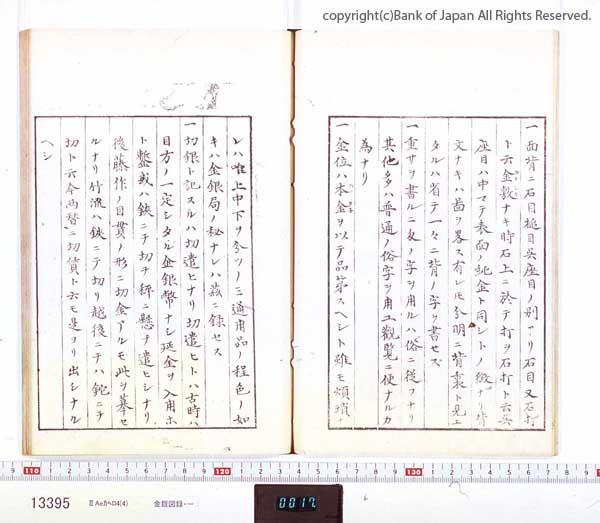 copyright(c)Bank of Japan All Rights Reserved.
一面背ニ石目槌目茣座目ノ別アリ石目又石打
ト云金敷ナキ時石上ニ於テ打ヲ石打ト云茣
座目ハ中マテ表面ノ純金ト同シトノ徴ナリ背
文ナキハ図ヲ畧ス有レモ分明ニ背裏ト見エ
タルハ省テ一々ニ背ノ字ヲ書セス
一重サヲ書ルニ匁ノ字ヲ用ルハ俗ニ従フナリ
其他多ハ普通ノ俗字ヲ用エ觀覧ニ便ナルカ
為ナリ
一金位ハ本金ヲ以テ品第スヘシト雖モ煩瑣ナ
レハ唯上中下ヲ分ツノミ通用品ノ程色ノ如
キハ金銀局ノ秘ナレハ茲ニ録セス
一切銀ト記スルハ切遣ヒナリ切遣ヒトハ古時ハ
目方ノ一定シタル金銀幣ナシ延金ヲ入用ホ
ト鏨或ハ鋏ニテ切ヲ秤ニ懸テ遣ヒシナリ
後藤作ノ目貫ノ形ニ切金アルモ此ヲ摹セ
ルナリ竹流ハ鋏ニテ切リ越後ニテハ鉈ニテ
切ト云今両替ニ切賃ト云モ是ヨリ出シナル
ヘシ
110 1 2 3 4 5 6 7 8 9 120 1 2 3 4 5 6 7 8 9 130 1 2 3 4 5
13395
II AeカヘロI4(4)
金銀図録・一
0017